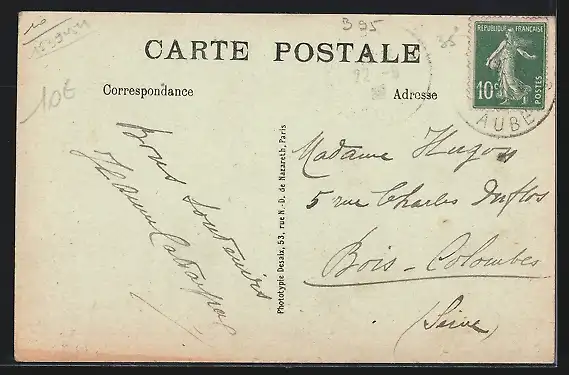 B95
10€
CARTE POSTALE
Correspondance
Adresse
REPUBLIQUE FRANÇAISE
10c
POSTES
AUBE
22
Bons Souvenirs
Phototypie Desaix, 53, rue N.-D. de Nazareth, Paris
Madame Hugon
5 rue Charles Duflos
Bois-Colombes
(Seine)